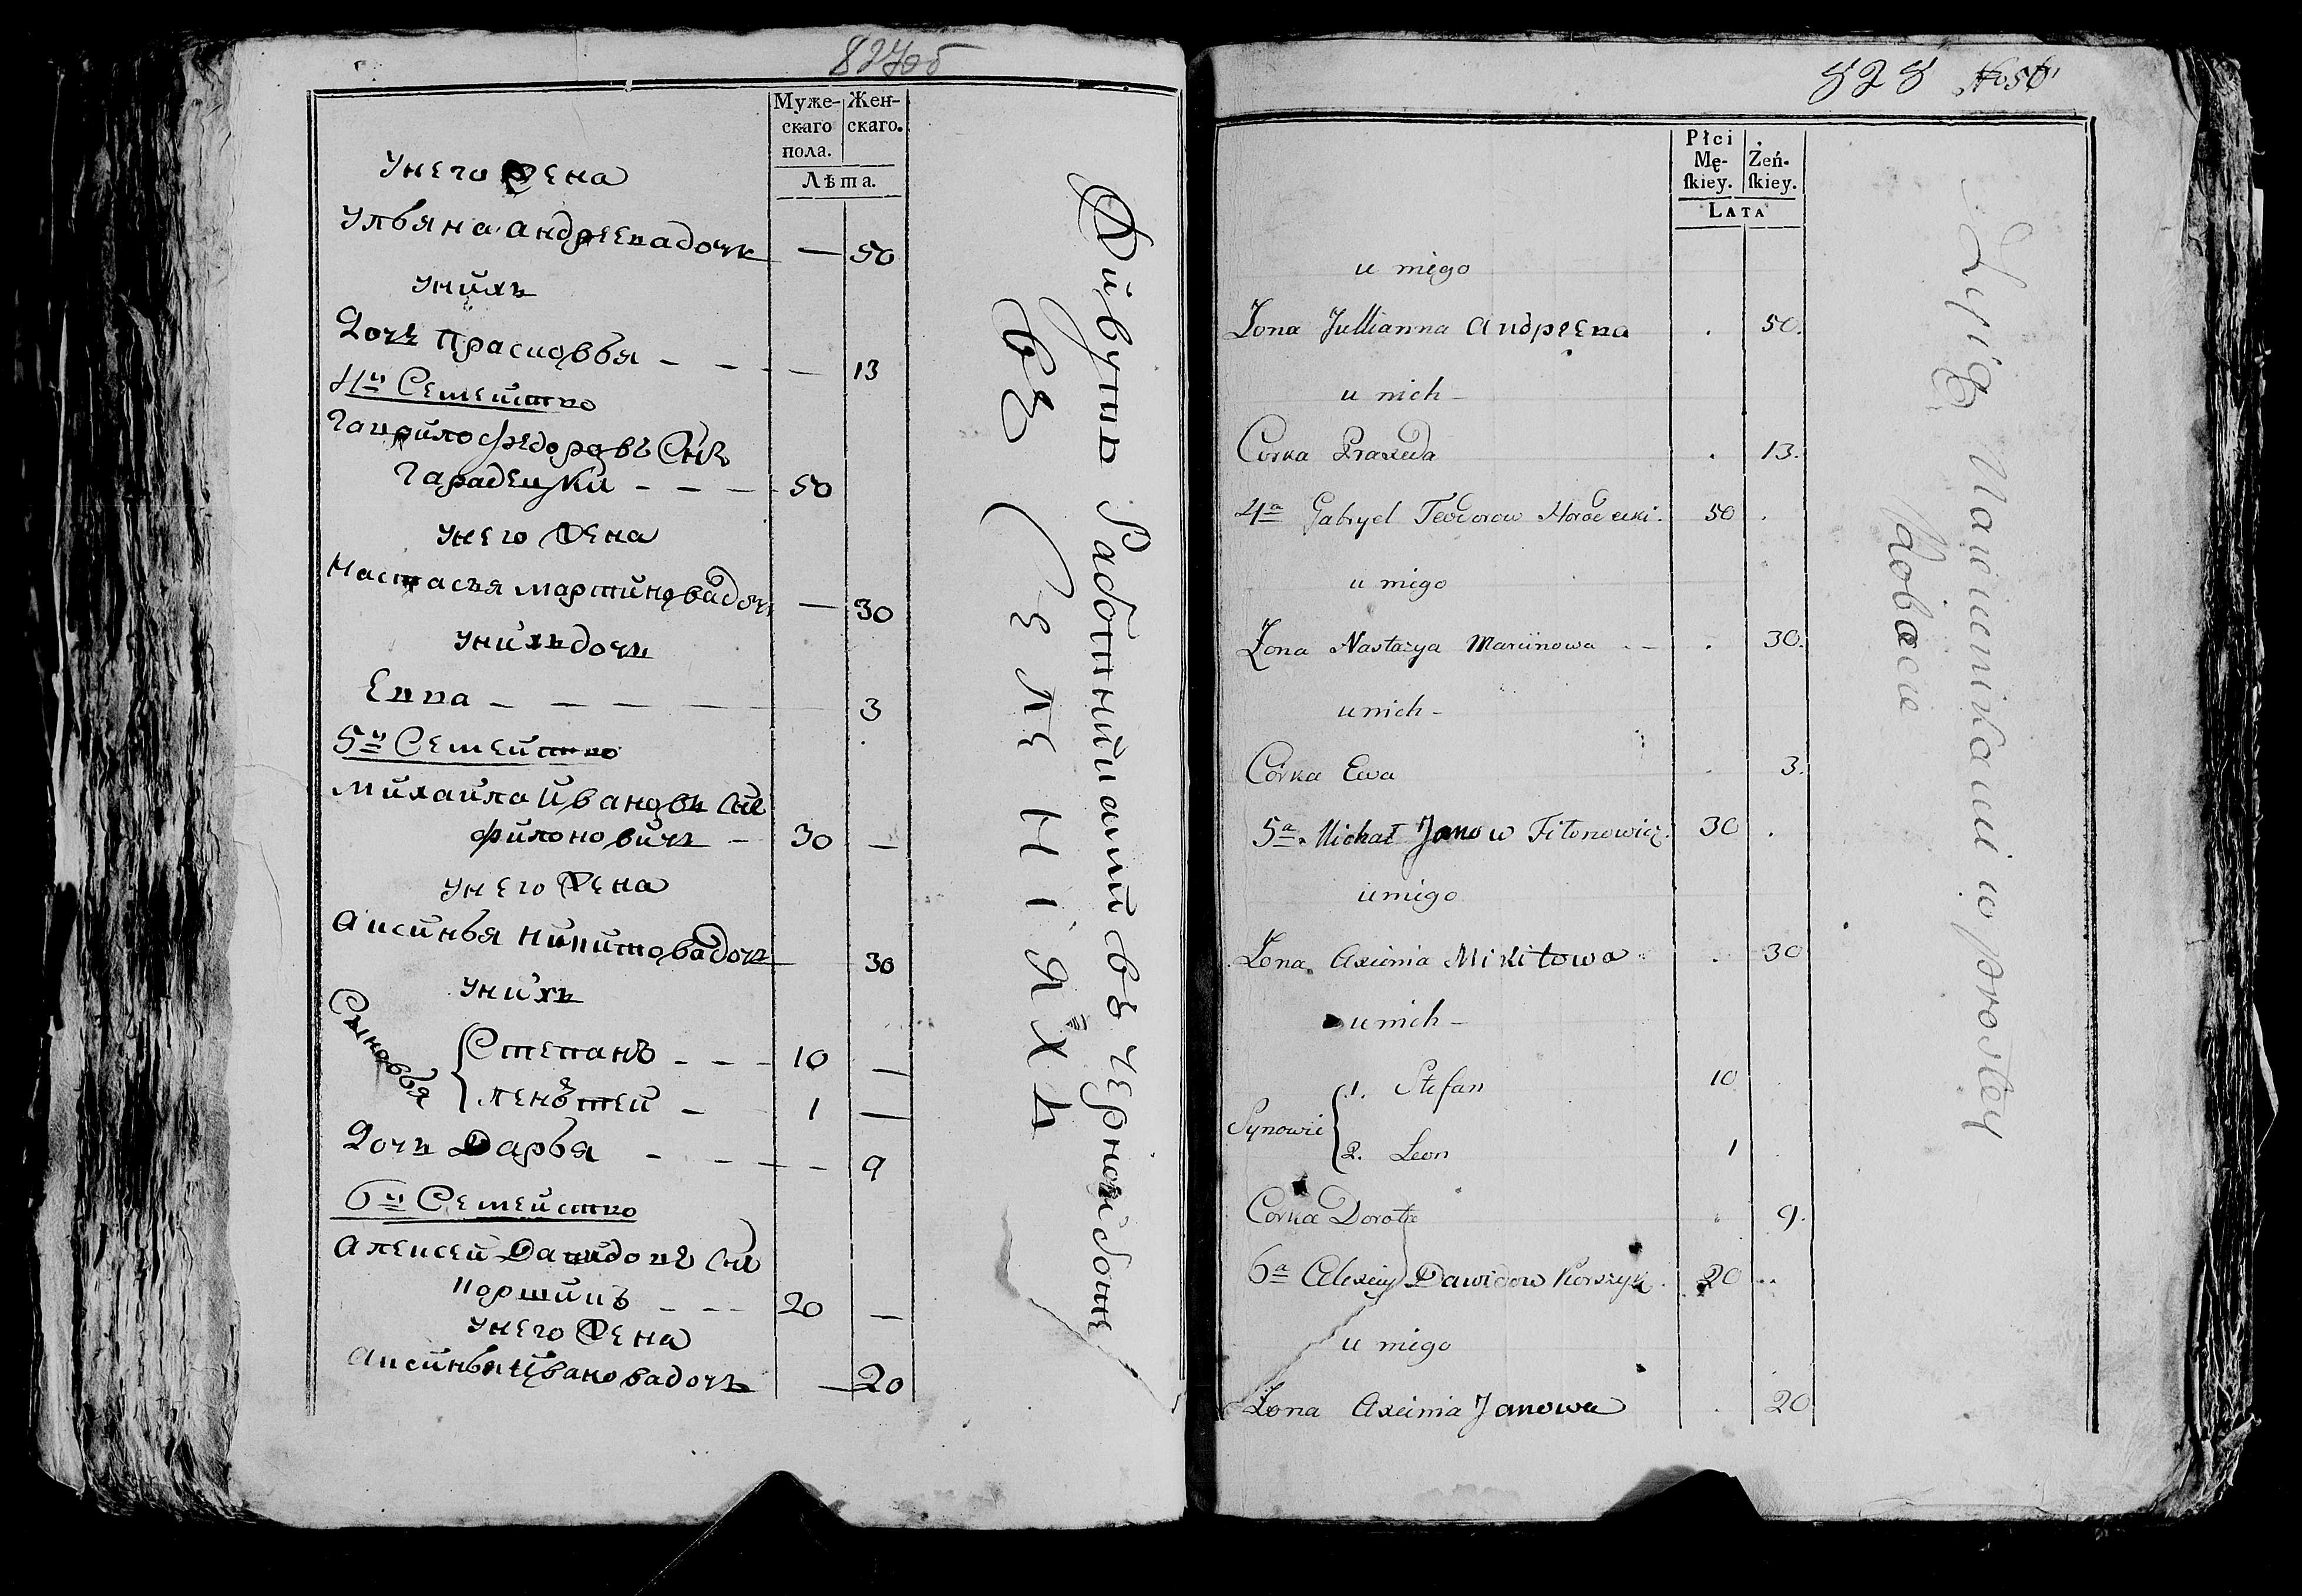 827об
Муже-
скаго
пола.
Жен-
скаго.
Лѣта.
Унего Жена
Ульяна Андреева дочь — 50
Унихъ
Дочь Прасковья — — — 13
4и Семейство
Гаврило Федоровъ Снъ
Гарадецки — — — 50
Унего Жена
Настасья Мартинова дочь — 30
Унихъ дочь
Евва — — — — 3
5и Семейство
Михайла Ивановъ Снъ
Филоновичъ — 30 —
Унего Жена
Аксинья Никитова дочь — 30
Унихъ
Сыновья
Степанъ — — 10 —
Леньтей — 1 —
Дочь Дарья — — — — 9
6и Семейство
Алексей Давидовъ Снъ
Коршикъ — — 20 —
Унего Жена
Аксинья Иванова дочь — 20
Работнийками въ черной
828 No 56
Płci
Mę-
ſkiey.
Żeń-
ſkiey.
LATA
u niego
Żona Jullianna Андреева . 50.
u nich -
Corka Praxeda . 13.
4a Gabryel Teodorow Horodecki. 50 .
u niego
Żona Nastazya Marcinowa - - . 30.
u nich -
Córka Ewa . 3.
5a Michał Janow Filonowicz. 30 .
u niego
Żona Axienia Mikitowa . 30
u nich -
Synowie
1. Stefan 10
2. Leon 1
Corka Dorota . 9.
6a Alexiey Dawidow Korszyk. 20 ..
u niego
Żona Axeinia Janowa . 20